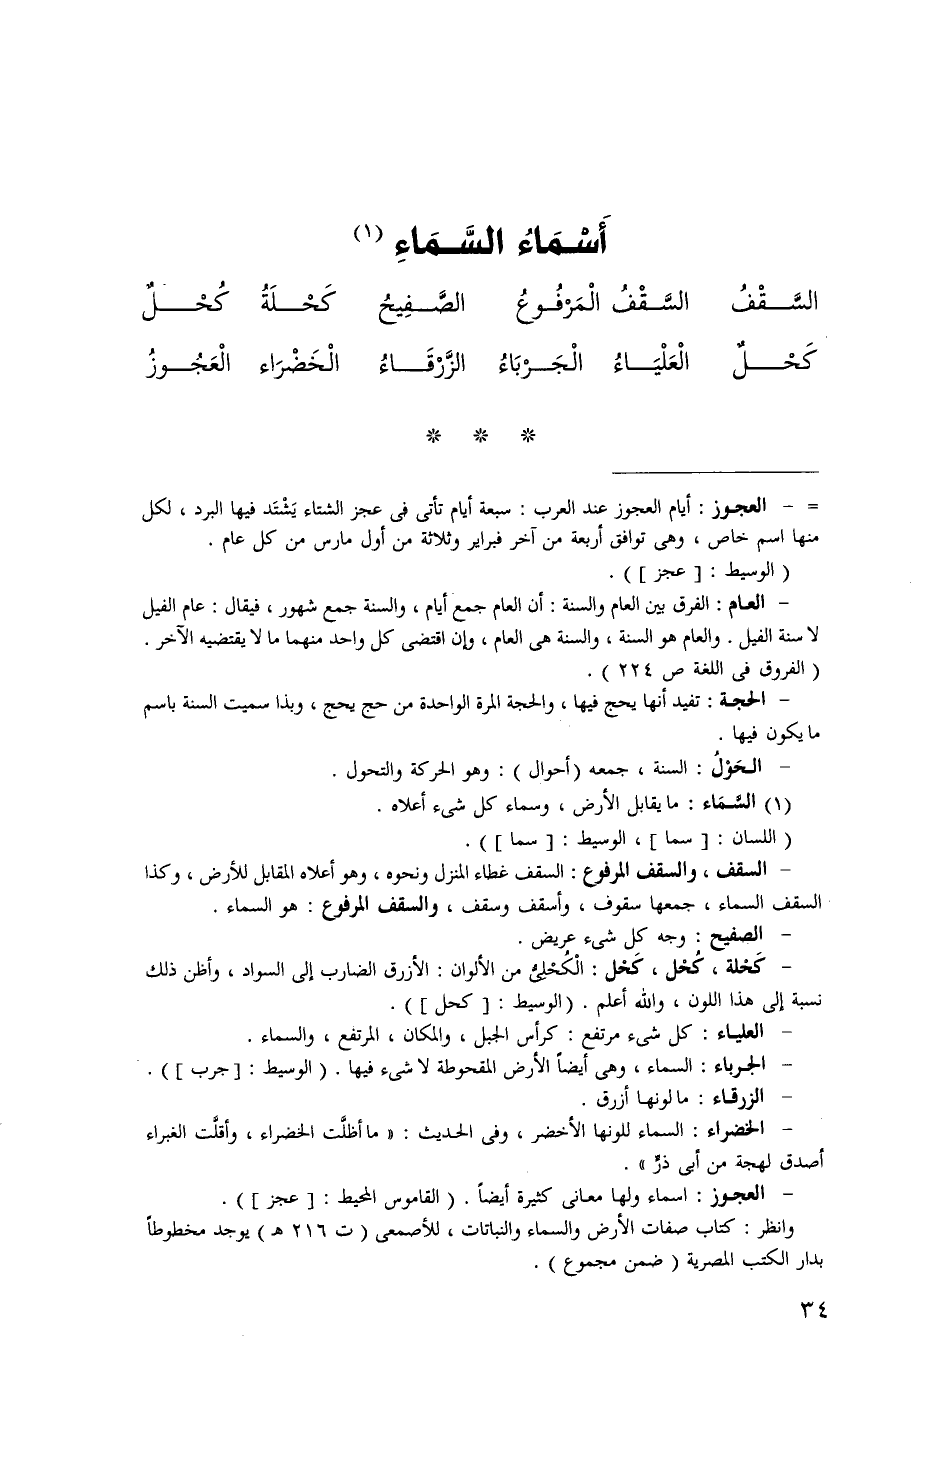 أَسْمَاءُ السَّمَاءِ (١)
السَّقْفُ السَّقْفُ الْمَرْفُوعُ الصَّفِيحُ كَحْلَةُ كُحْلٌ
كَحْلٌ الْعَلْيَاءُ الْجَرْبَاءُ الزَّرْقَاءُ الْخَضْرَاء الْعَجُوزُ
* * *
= – العجوز : أيام العجوز عند العرب : سبعة أيام تأتى فى عجز الشتاء يَشْتَد فيها البرد ، لكل
منها اسم خاص ، وهى توافق أربعة من آخر فبراير وثلاثة من أول مارس من كل عام .
( الوسيط : [ عجز ] ) .
– العام : الفرق بين العام والسنة : أن العام جمع أيام ، والسنة جمع شهور ، فيقال : عام الفيل
لا سنة الفيل . والعام هو السنة ، والسنة هى العام ، وإن اقتضى كل واحد منهما ما لا يقتضيه الآخر .
( الفروق فى اللغة ص ٢٢٤ ) .
– الحجة : تفيد أنها يحج فيها ، والحجة المرة الواحدة من حج يحج ، وبذا سميت السنة باسم
ما يكون فيها .
– الحَوْلُ : السنة ، جمعه (أحوال ) : وهو الحركة والتحول .
(١) السَّمَاء : ما يقابل الأرض ، وسماء كل شىء أعلاه .
( اللسان : [ سما ] ، الوسيط : [ سما ] ) .
– السقف ، والسقف المرفوع : السقف غطاء المنزل ونحوه ، وهو أعلاه المقابل للأرض ، وكذا
السقف السماء ، جمعها سقوف ، وأسقف وسقف ، والسقف المرفوع : هو السماء .
– الصفيح : وجه كل شىء عريض .
– كَحْلة ، كُحْل ، كَحْل : الْكُحْلِىُّ من الألوان : الأزرق الضارب إلى السواد ، وأظن ذلك
نسبة إلى هذا اللون ، والله أعلم . (الوسيط : [ كحل ] ) .
– العلياء : كل شىء مرتفع : كرأس الجبل ، والمكان ، المرتفع ، والسماء .
– الجرباء : السماء ، وهى أيضاً الأرض المقحوطة لا شىء فيها . ( الوسيط : [ جرب ] ) .
– الزرقاء : ما لونها أزرق .
– الخضراء : السماء للونها الأخضر ، وفى الحديث : « ما أظلَّت الخضراء ، وأقلَّت الغبراء
أصدق لهجة من أبى ذرٍّ » .
– العجوز : اسماء ولها معانى كثيرة أيضاً . ( القاموس المحيط : [ عجز ] ) .
وانظر : كتاب صفات الأرض والسماء والنباتات ، للأصمعى ( ت ٢١٦ هـ ) يوجد مخطوطاً
بدار الكتب المصرية ( ضمن مجموع ) .
٣٤